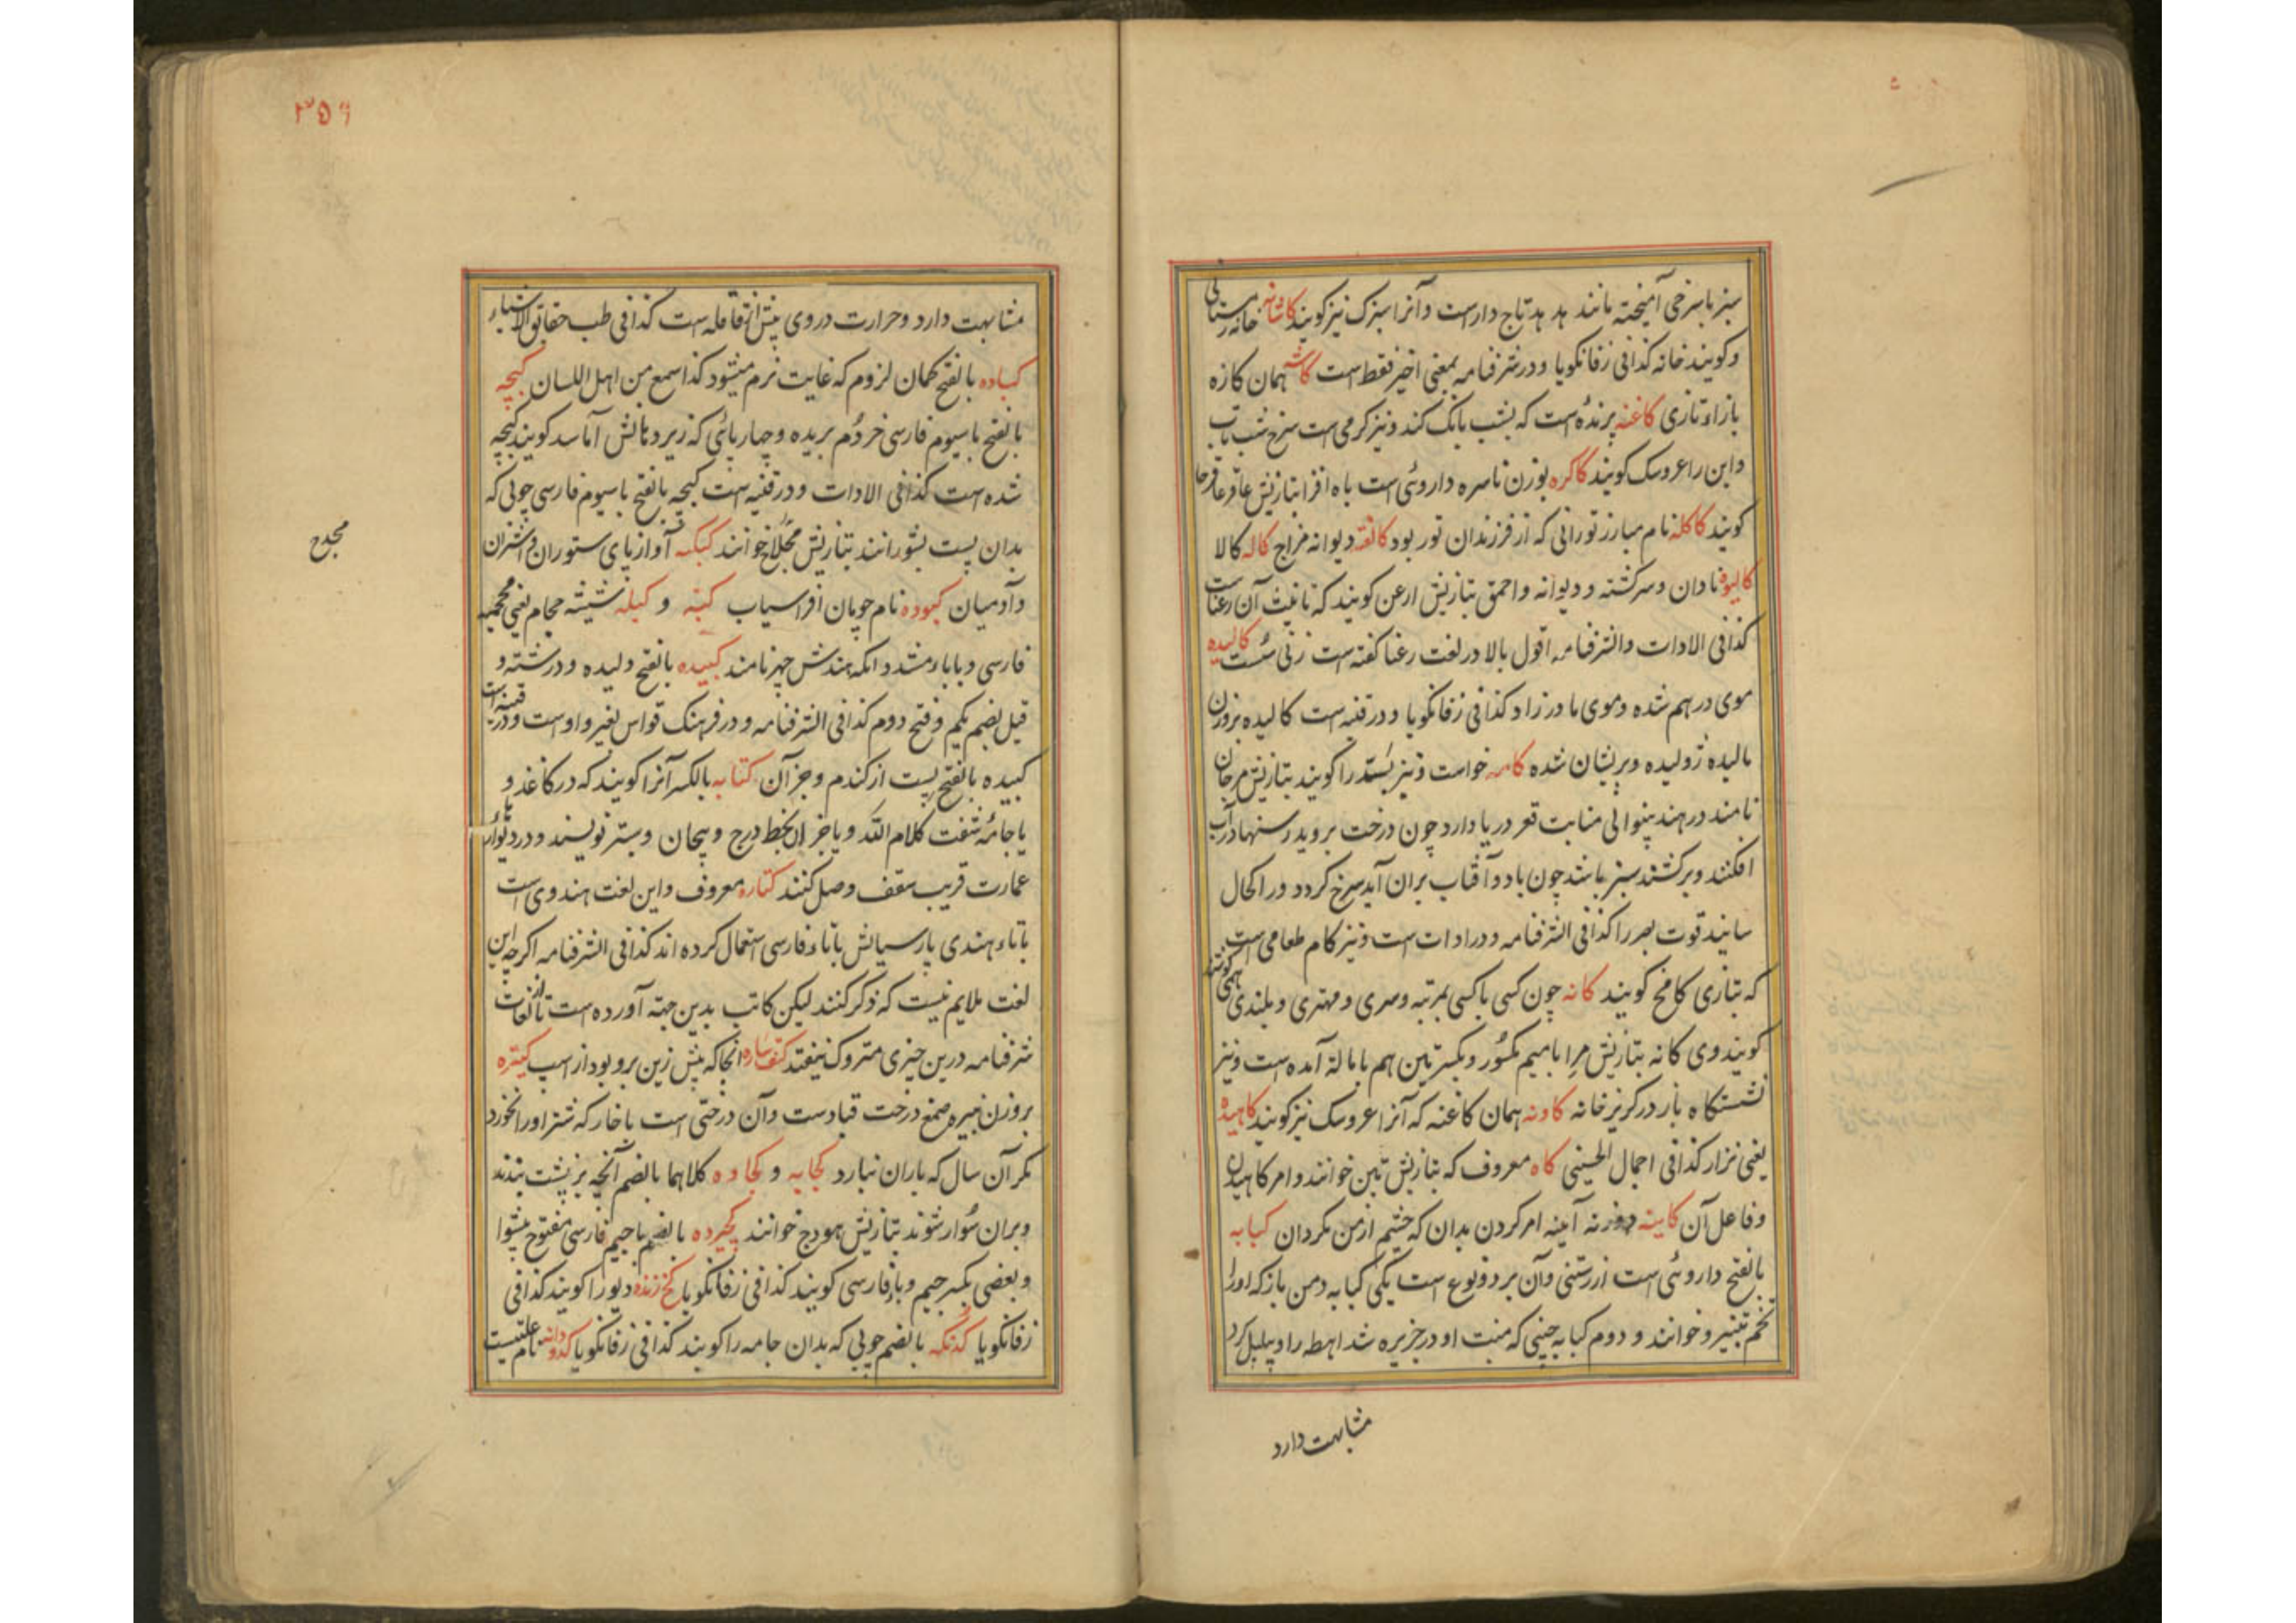 سبز باسرخی آمیخته مانند هد هد تاج دارست و آنرا سبزک نیز کویند کاشانه خانه زمستانی
و کویند خانه کذافی زفانکویا و در شرفنامه بمعنی اخیر فقط است کاشه همان کازه
بازاء تازی کاغنه پرنده‌است که بشب بانک کند و نیز کرمی است سرخ شب تاب
و این را عروسک کویند کاکره بوزن ناسره داروئی است باه افزا بتازیش عاقرقرحا
کویند کاکله نام مبارز تورانی که از فرزندان تور بود کالفته دیوانه مزاج کاله کالا
کالیوه نادان و سرکشته و دیوانه و احمق بتازیش ارعن کویند که تانیث آن رعناست
کذافی الادات والشرفنامه اقول بالا در لغت رعنا کفته است زنی سست کالیده
موی درهم شده و موی مادرزاد کذافی زفانکویا و در قنیه است کالیده بروزن
مالیده ژولیده و پریشان شده کامه خواست و نیز بسد را کویند بتازیش مرجان
نامند در هند پنوالی منابت قعر دریا دارد چون درخت بروید رسنها در آب
افکنند و برکشند سبز باشد چون باد و آفتاب بران آید سرخ کردد در اکحال
سانید قوت بصر را کذافی الشرفنامه و در ادات است و نیز کام طعامی است
که بتازی کامخ کویند کانه چون کسی با کسی بمرتبه و سری و مهتری و بلندی همی کوشد
کویند وی کانه بتازیش مرا با میم مکسور و بکسرتین هم با مالة آمده است و نیز
نشستکاه بار در کریز خانه کاونه همان کاغنه که آنرا عروسک نیز کویند کاهیده
یعنی نزار کذافی اجمال الحسینی کاه معروف که بتازیش تبن خوانند و امر کاهیدن
و فاعل آن کابینه دوزنه آینه امر کردن بدان که چشم از من مکردان کبابه
بالفتح داروئی است ازرستنی و آن بر دو نوع است یکی کبابه دمن باز که اورا
تخم تنبیرو خوانند و دوم کبابه چینی که منبت او در جزیره شد اهطه را و پیلپل کرد
مشابهت دارد
۳۵۶
مشابهت دارد و حرارت در وی بیش از قاقله است کذافی طب حقایق الاشیاء
کباده بالفتح کمان لزوم که غایت نرم میشود کذا سمع من اهل اللسان کبچه
بالفتح باسیوم فارسی خر دم بریده و چارپائی که زیر دهانش آماسد کویند کبچه
شده است کذافی الادات و در قنیه است کبچه بالفتح باسیوم فارسی چوبی که
بدان پست بشورانند بتازیش مجدح خوانند کبکبه آواز پای ستوران و شتران
و آدمیان کبوده نام چوپان افراسیاب کبه و کبله شیشه حجام یعنی محجمه
فارسی و باباء مشدد انکه هندش جهر نامند کبیده بالفتح دلیده و درشته و
قیل بضم یکم و فتح دوم کذافی الشرفنامه و در فرهنک قواس بغیر واوست و در قنیه است
کبیده بالفتح پست از کندم و جز آن کتابه بالکسر آنرا کویند که در کاغذ و
یا جامه شفت کلام الله و یا جز ان بخط درج و پیچان و بستر نویسند و در دیوار
عمارت قریب سقف وصل کنند کتاره معروف و این لغت هندوی است
باتاء هندی پارسیانش باتاء فارسی استعمال کرده اند کذافی الشرفنامه اکرچه این
لغت ملایم نیست که ذکر کنند لیکن کاتب بدین جهته آورده است تا از لغات
شرفنامه درین چیزی متروک نیفتد کتفساره انجا که پیش زین برو بود از اسپ کتیره
بروزن نبیره صمغ درخت قتادست و آن درختی است باخار که شتر اورا نخورد
مکر آن سال که باران نبارد کجابه و کجاوه کلاهما بالضم آنچه بر پشت بندند
و بران سوار شوند بتازیش هودج خوانند کجیرده بالضم باجیم فارسی مفتوح پیشوا
و بعضی بکسر جیم و باء فارسی کویند کذافی زفانکویا کخ زنده دیو را کویند کذافی
زفانکویا کدنکه بالضم چوبی که بدان جامه را کویند کذافی زفانکویا کدو دانه نام علتیست
مجدح